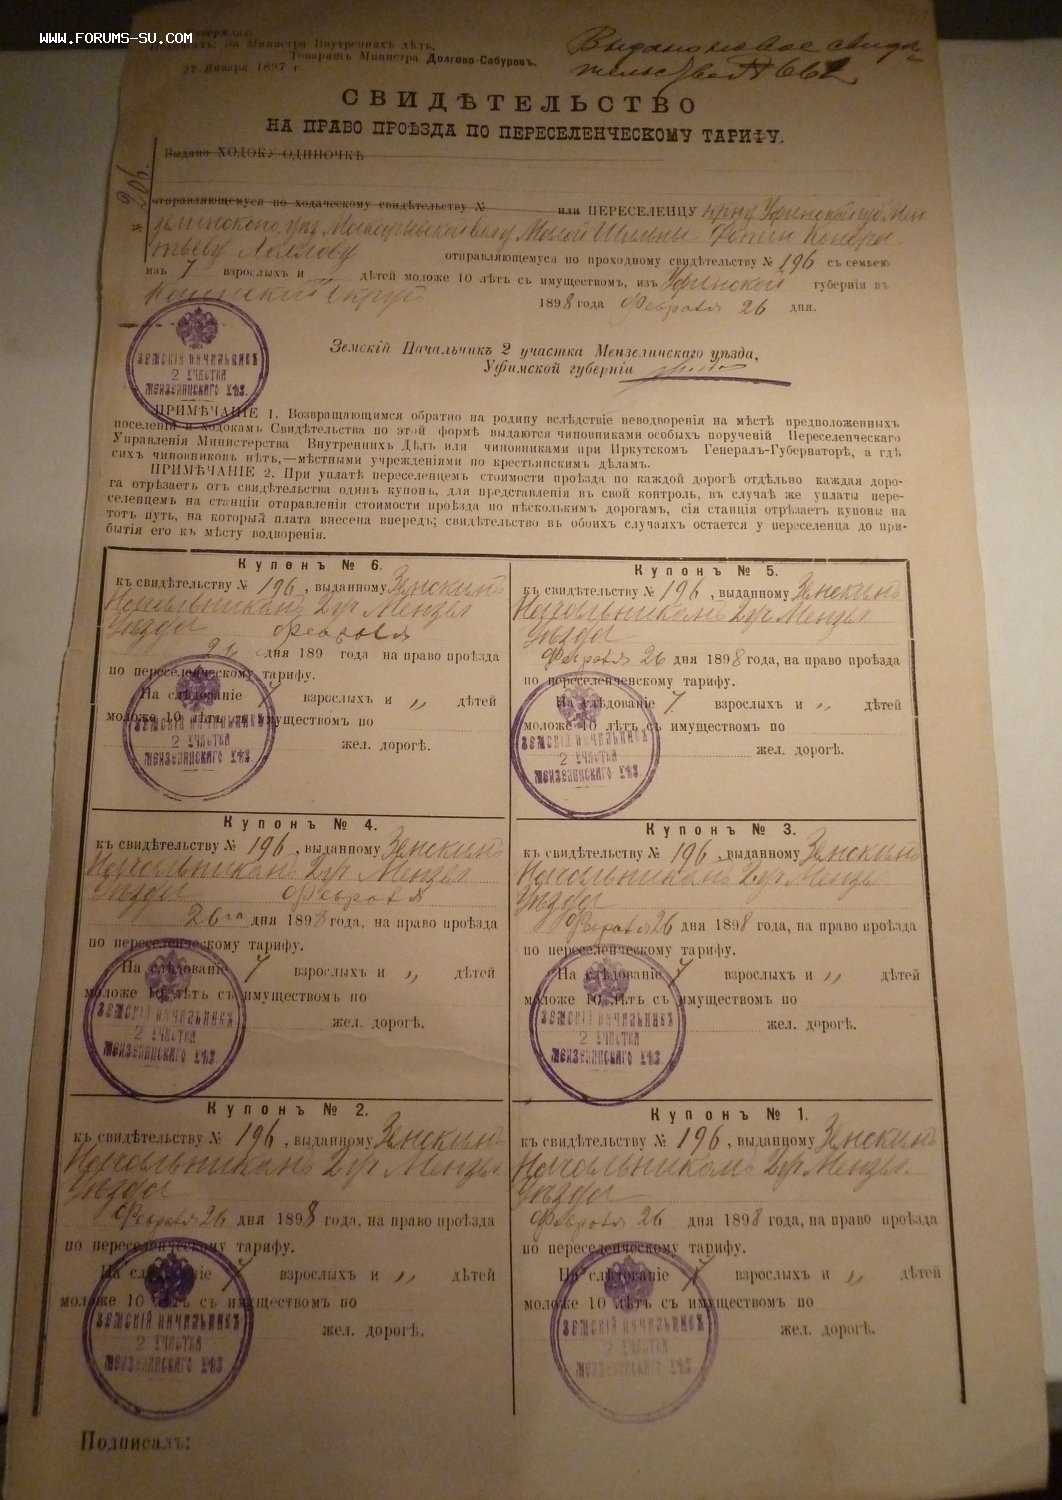 www.forums-su.com
За Министра Внутреннихъ дѣлъ,
Товарищъ Министра Долгово-Сабуровъ.
27 Января 1897 г.
Выдано новое свиде-
тельство № 662
СВИДѢТЕЛЬСТВО
НА ПРАВО ПРОѢЗДА ПО ПЕРЕСЕЛЕНЧЕСКОМУ ТАРИФУ.
Выдано ХОДОКУ-ОДИНОЧКѢ
№ 206.
отправляющемуся по ходаческому свидѣтельству № или ПЕРЕСЕЛЕНЦУ Уфимской губ Мен
зелинскаго
отправляющемуся по проходному свидѣтельству № 196 съ семьею
изъ 7 взрослыхъ и дѣтей моложе 10 лѣтъ съ имуществомъ, изъ Уфимской губерніи въ
1898 года Февраля 26 дня.
Земскій Начальникъ 2 участка Мензелинскаго уѣзда,
Уфимской губерніи
ЗЕМСКІЙ НАЧАЛЬНИКЪ
2 УЧАСТКА
МЕНЗЕЛИНСКАГО УѢЗ.
ПРИМѢЧАНІЕ 1. Возвращающимся обратно на родину вслѣдствіе неводворенія на мѣстѣ предположенныхъ
поселенія и ходокамъ Свидѣтельства по этой формѣ выдаются чиновниками особыхъ порученій Переселенческаго
Управленія Министерства Внутреннихъ Дѣлъ или чиновниками при Иркутскомъ Генералъ-Губернаторѣ, а гдѣ
сихъ чиновниковъ нѣтъ,—мѣстными учрежденіями по крестьянскимъ дѣламъ.
ПРИМѢЧАНІЕ 2. При уплатѣ переселенцемъ стоимости проѣзда по каждой дорогѣ отдѣльно каждая доро-
га отрѣзаетъ отъ свидѣтельства одинъ купонъ, для представленія въ свой контроль, въ случаѣ же уплаты пере-
селенцемъ на станціи отправленія стоимости проѣзда по нѣсколькимъ дорогамъ, сія станція отрѣзаетъ купоны на
тотъ путь, на который плата внесена впередъ; свидѣтельство въ обоихъ случаяхъ остается у переселенца до при-
бытія его къ мѣсту водворенія.
Купонъ № 6.
къ свидѣтельству № 196, выданному Земскимъ
Начальникомъ 2 уч Мензел
Уѣзда Февраля
26 дня 189 года на право проѣзда
по переселенческому тарифу.
На слѣдованіе 7 взрослыхъ и „ дѣтей
моложе 10 лѣтъ съ имуществомъ по
жел. дорогѣ.
ЗЕМСКІЙ НАЧАЛЬНИКЪ
2 УЧАСТКА
МЕНЗЕЛИНСКАГО УѢЗ.
Купонъ № 5.
къ свидѣтельству № 196, выданному Земскимъ
Начальникомъ 2 уч Мензел
Уѣзда
Февраля 26 дня 1898 года, на право проѣзда
по переселенческому тарифу.
На слѣдованіе 7 взрослыхъ и „ дѣтей
моложе 10 лѣтъ съ имуществомъ по
жел. дорогѣ.
ЗЕМСКІЙ НАЧАЛЬНИКЪ
2 УЧАСТКА
МЕНЗЕЛИНСКАГО УѢЗ.
Купонъ № 4.
къ свидѣтельству № 196, выданному Земскимъ
Начальникомъ 2 уч Мензел
Уѣзда Февраля
26го дня 1898 года, на право проѣзда
по переселенческому тарифу.
На слѣдованіе 7 взрослыхъ и „ дѣтей
моложе 10 лѣтъ съ имуществомъ по
жел. дорогѣ.
ЗЕМСКІЙ НАЧАЛЬНИКЪ
2 УЧАСТКА
МЕНЗЕЛИНСКАГО УѢЗ.
Купонъ № 3.
къ свидѣтельству № 196, выданному Земскимъ
Начальникомъ 2 уч Мензел
Уѣзда
Февраля 26 дня 1898 года, на право проѣзда
по переселенческому тарифу.
На слѣдованіе 7 взрослыхъ и „ дѣтей
моложе 10 лѣтъ съ имуществомъ по
жел. дорогѣ.
ЗЕМСКІЙ НАЧАЛЬНИКЪ
2 УЧАСТКА
МЕНЗЕЛИНСКАГО УѢЗ.
Купонъ № 2.
къ свидѣтельству № 196, выданному Земскимъ
Начальникомъ 2 уч Мензел
Уѣзда
Февраля 26 дня 1898 года, на право проѣзда
по переселенческому тарифу.
На слѣдованіе 7 взрослыхъ и „ дѣтей
моложе 10 лѣтъ съ имуществомъ по
жел. дорогѣ.
ЗЕМСКІЙ НАЧАЛЬНИКЪ
2 УЧАСТКА
МЕНЗЕЛИНСКАГО УѢЗ.
Купонъ № 1.
къ свидѣтельству № 196, выданному Земскимъ
Начальникомъ 2 уч Мензел
Уѣзда
Февраля 26 дня 1898 года, на право проѣзда
по переселенческому тарифу.
На слѣдованіе 7 взрослыхъ и „ дѣтей
моложе 10 лѣтъ съ имуществомъ по
жел. дорогѣ.
ЗЕМСКІЙ НАЧАЛЬНИКЪ
2 УЧАСТКА
МЕНЗЕЛИНСКАГО УѢЗ.
Подписалъ: